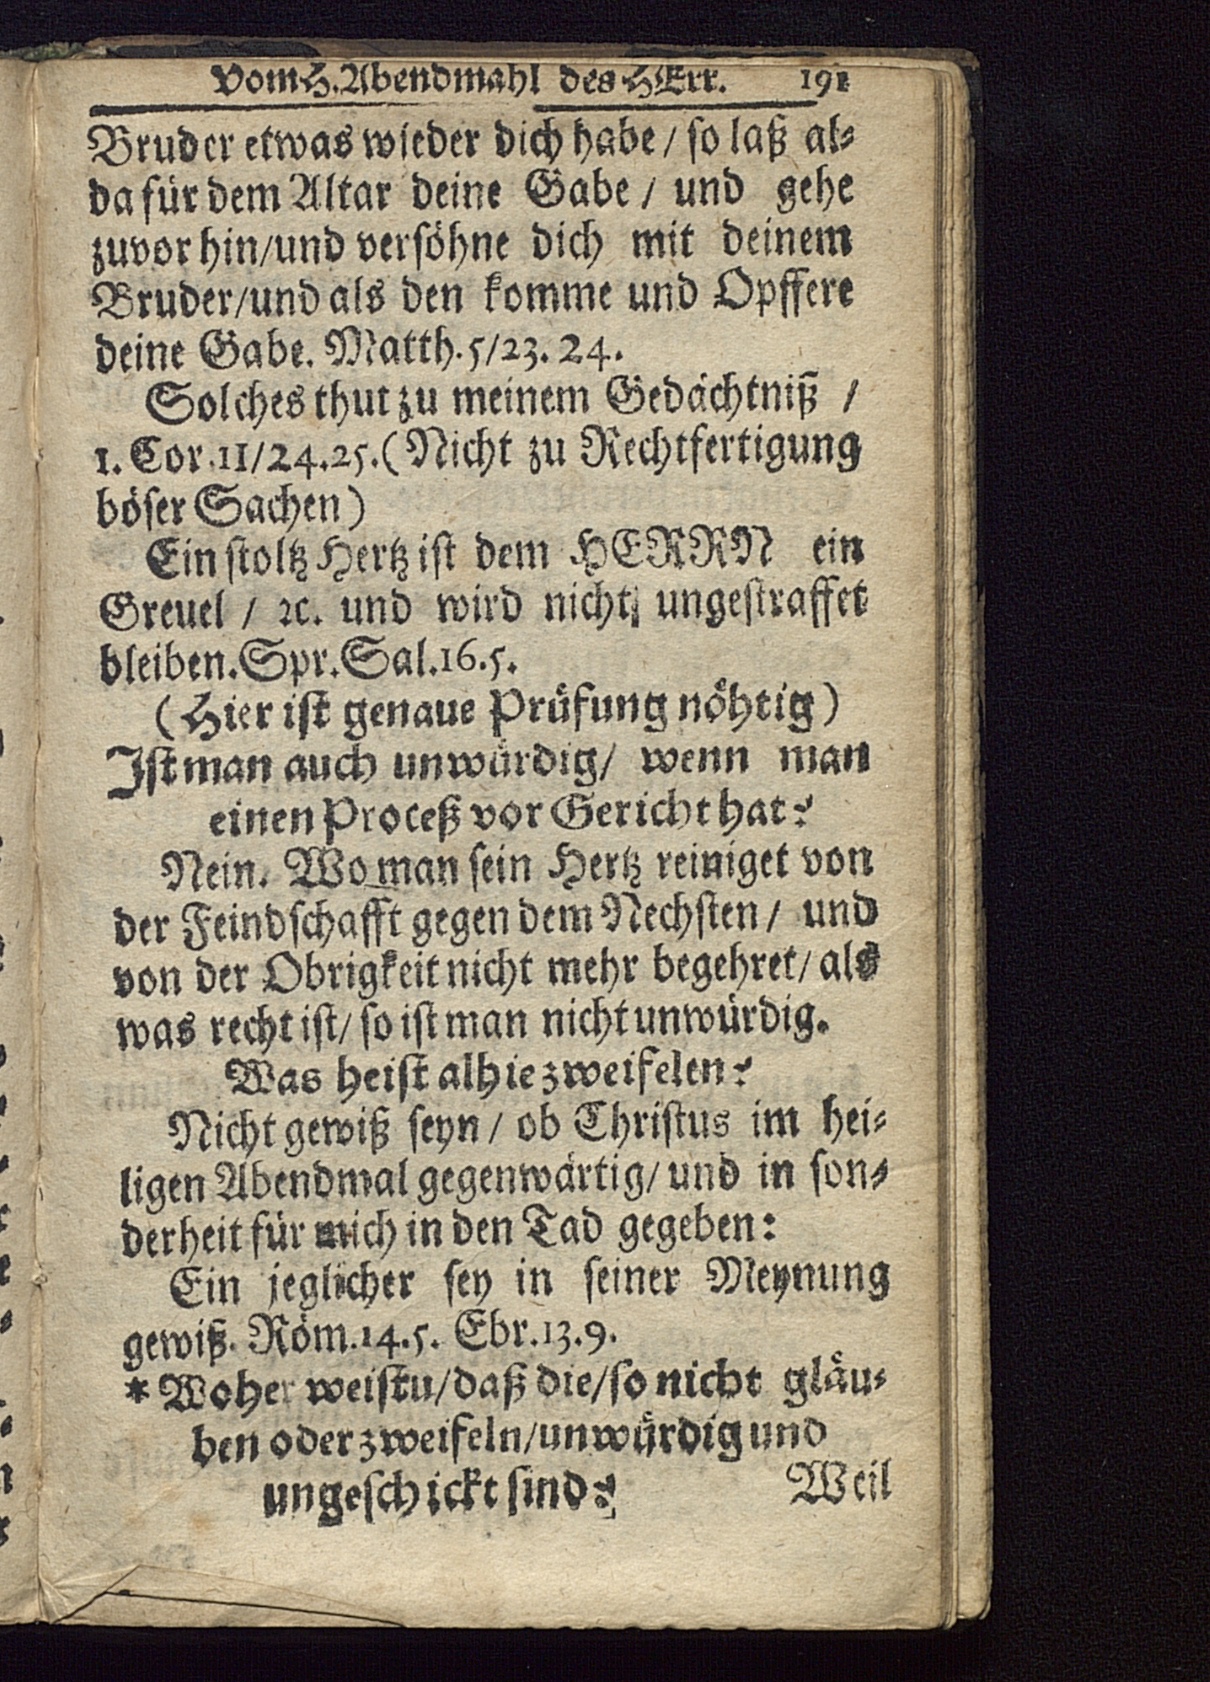 Vom H. Abendmahl des HErr. 191
Bruder etwas wieder dich habe / so laß al-
da für dem Altar deine Gabe / und gehe
zuvor hin/und versöhne dich mit deinem
Bruder/und als den komme und Opffere
deine Gabe. Matth. 5/23. 24.
Solches thut zu meinem Gedächtniß /
1. Cor. 11/24.25. (Nicht zu Rechtfertigung
böser Sachen)
Ein stoltz Hertz ist dem HERRN ein
Greuel / ꝛc. und wird nicht ungestraffet
bleiben. Spr. Sal. 16. 5.
(Hier ist genaue Prüfung nöhtig)
Ist man auch unwürdig/ wenn man
einen Proceß vor Gericht hat?
Nein. Wo man sein Hertz reiniget von
der Feindschafft gegen dem Nechsten/ und
von der Obrigkeit nicht mehr begehret/ als
was recht ist/ so ist man nicht unwürdig.
Was heist alhie zweifelen?
Nicht gewiß seyn/ ob Christus im hei-
ligen Abendmal gegenwärtig/ und in son-
derheit für mich in den Tad gegeben:
Ein jeglicher sey in seiner Meynung
gewiß. Röm. 14. 5. Ebr. 13. 9.
* Woher weistu/daß die/so nicht gläu-
ben oder zweifeln/unwürdig und
ungeschickt sind?
Weil